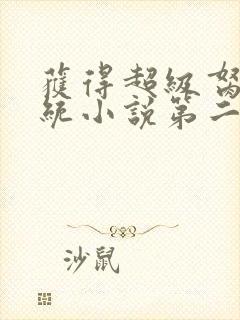 獲得超級
統小說第二
沙鼠